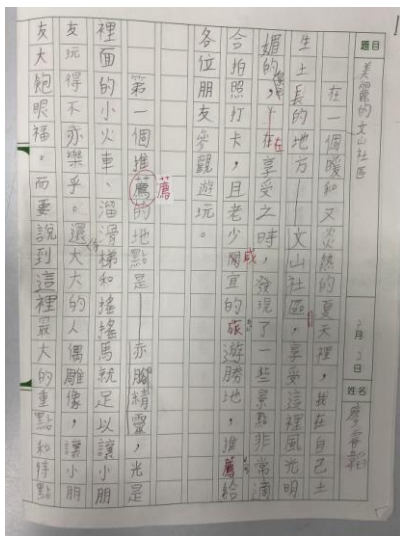 題目
美麗的文山社區
月
日
姓名
在一個暖和又火熱的夏天裡，我在自己土
生土長的地方——文山社區，享受這裡風光明
媚的，在享受之時，發現了一些景點非常適
合拍照打卡，且老少咸宜的旅遊勝地，推薦給
各位朋友參觀遊玩。
第一個推薦的地點是——赤腳精靈，光是
裡面的小火車、溜滑梯和搖搖馬就足以讓小朋
友玩得不亦樂乎。還大大的人偶雕像，讓小朋
友大飽眼福。而要說到這裡最大的重點和特點